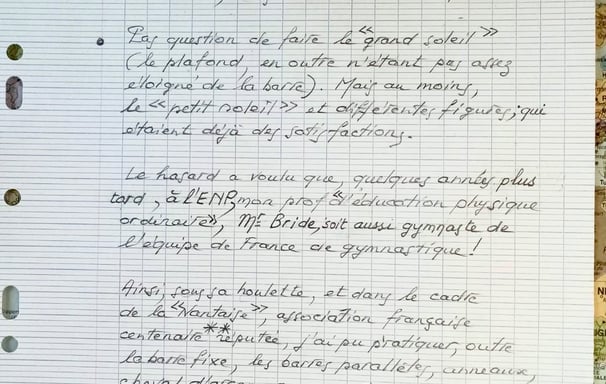 Pas question de faire le «grand soleil»
(le plafond, en outre n'étant pas assez
éloigné de la barre). Mais au moins,
le «petit soleil» et différentes figures; qui
étaient déjà des satisfactions.
Le hasard a voulu que, quelques années plus
tard, à l'ENP, mon prof «d'éducation physique
ordinaire», Mr Bride, soit aussi gymnaste de
l'équipe de France de gymnastique!
Ainsi, sous sa houlette, et dans le cadre
de la «Nantaise», association française
centenaire ** réputée, j'ai pu pratiquer, outre
la barre fixe, les barres parallèles, anneaux,